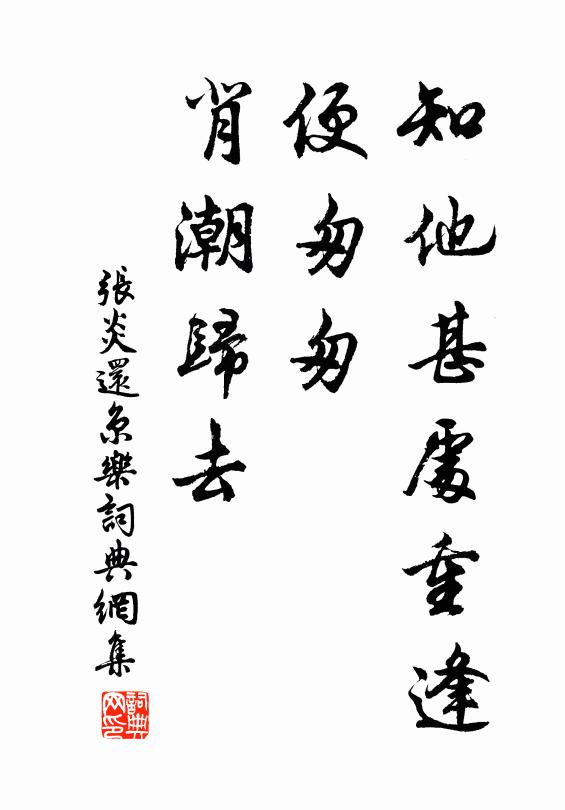 知他甚處重逢
便匆匆
背潮歸去
張炎還京樂詞典網集
詞典網印